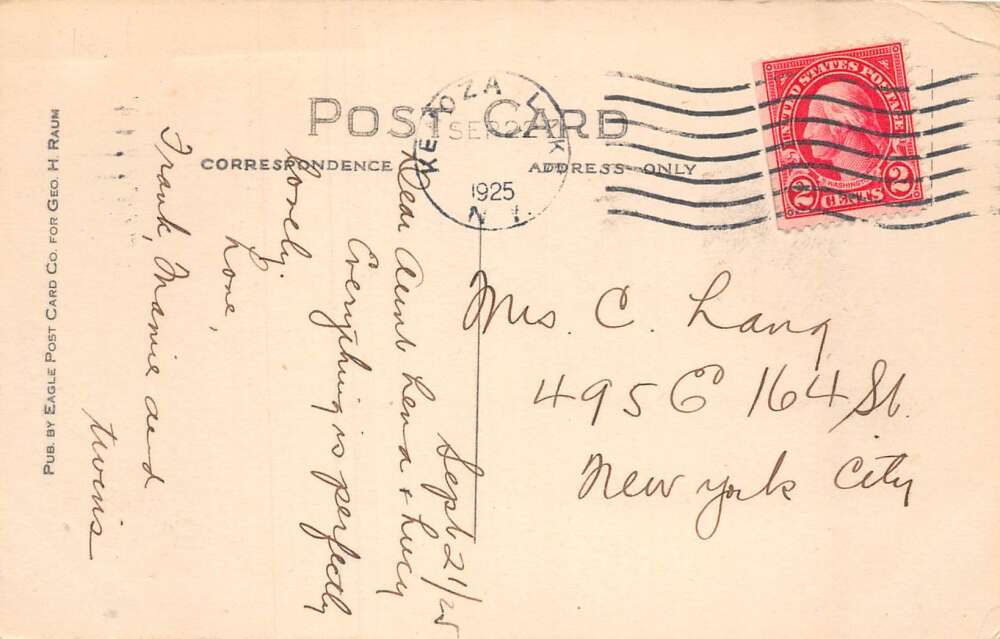 POST CARD
CORRESPONDENCE
ADDRESS ONLY
KENOZA LK
SEP 22
1925
N.Y.
UNITED STATES POSTAGE
WASHINGTON
2 CENTS 2
Mrs. C. Lang
495 E 164 St.
New York City
Sept 21/25
Dear Aunt Lena & Lucy
Everything is perfectly
lovely.
Love,
Frank, Mamie and
twins
PUB. BY EAGLE POST CARD CO. FOR GEO. H. RAUM